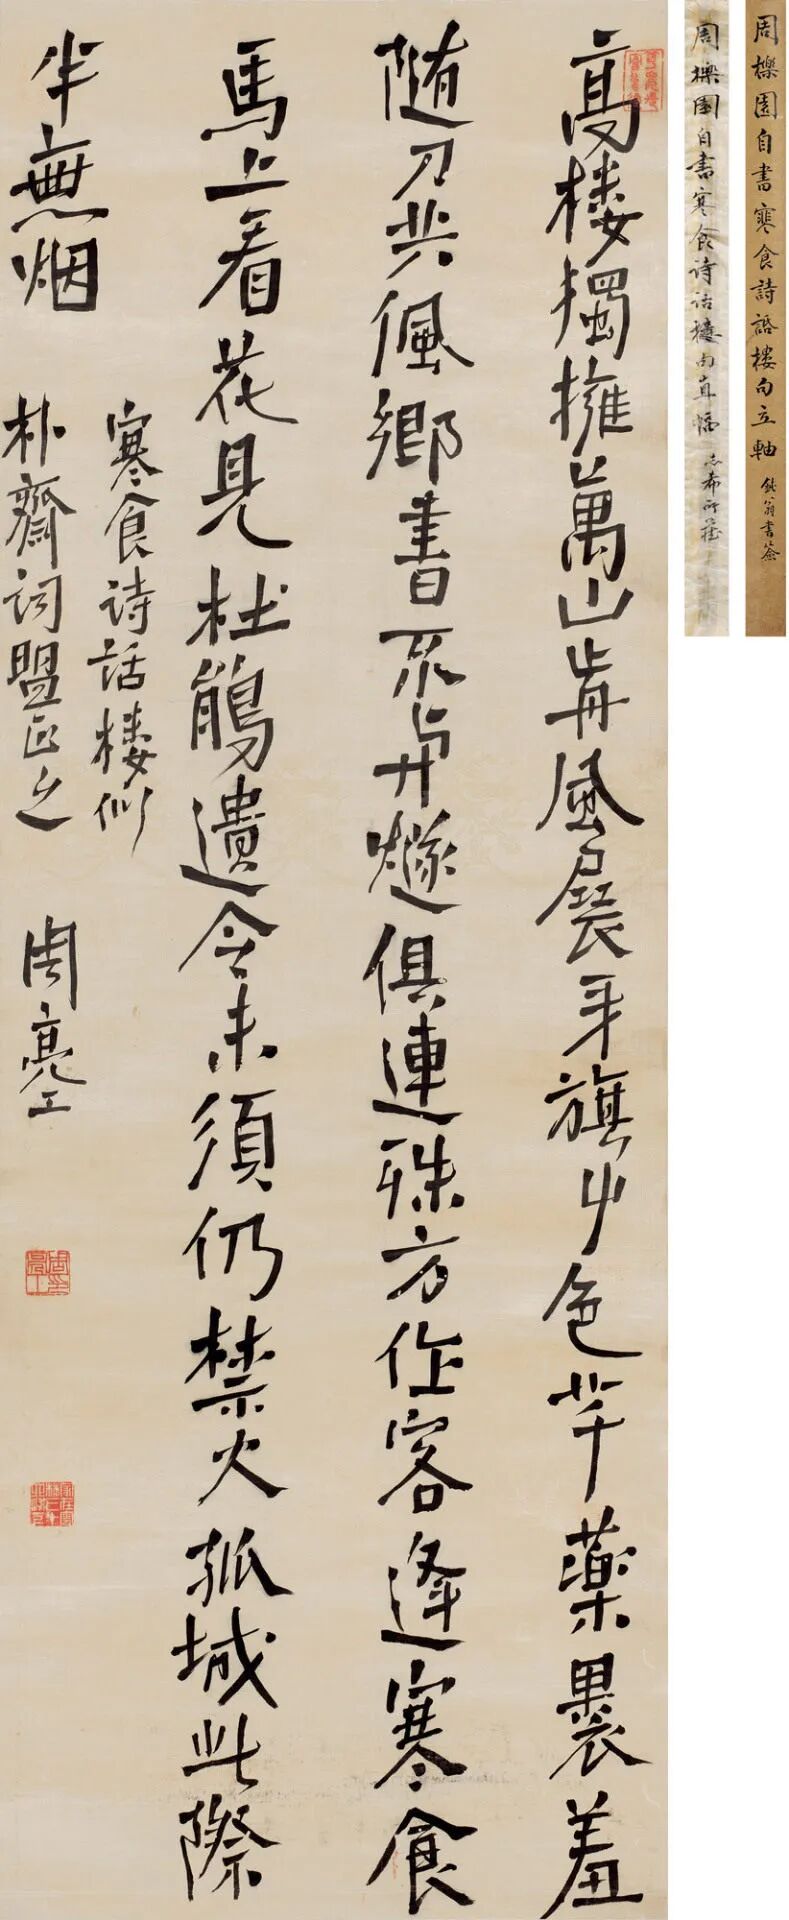 高楼獨擁萬山前風展牙旗艸色芊藥裹羞
随刀共佩鄉書不與燧俱連殊方作客逢寒食
馬上看花見杜鵑遺令未須仍禁火孤城此際
半無烟
寒食詩話楼似
朴齋詞盟正之
周亮工
周櫟園自書寒食诗话樓句直幅 志希所藏
周櫟園自書寒食詩話楼句立軸 鈍翁書簽